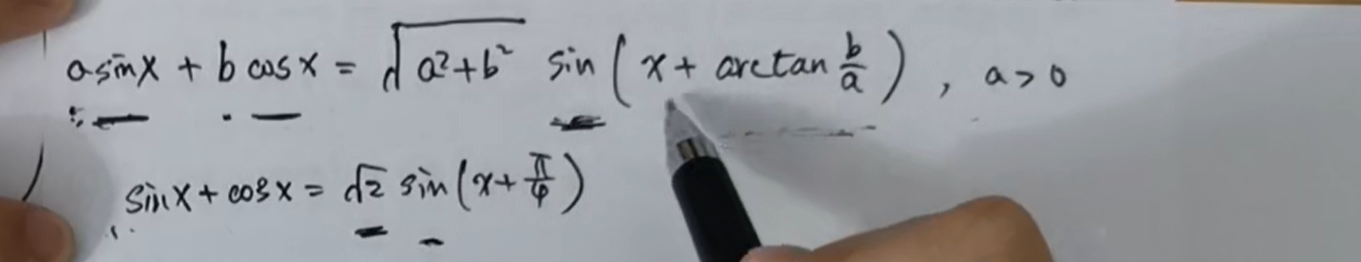 a sin x + b cos x = √(a² + b²) sin(x + arctan b/a), a > 0
sin x + cos x = √2 sin(x + π/4)